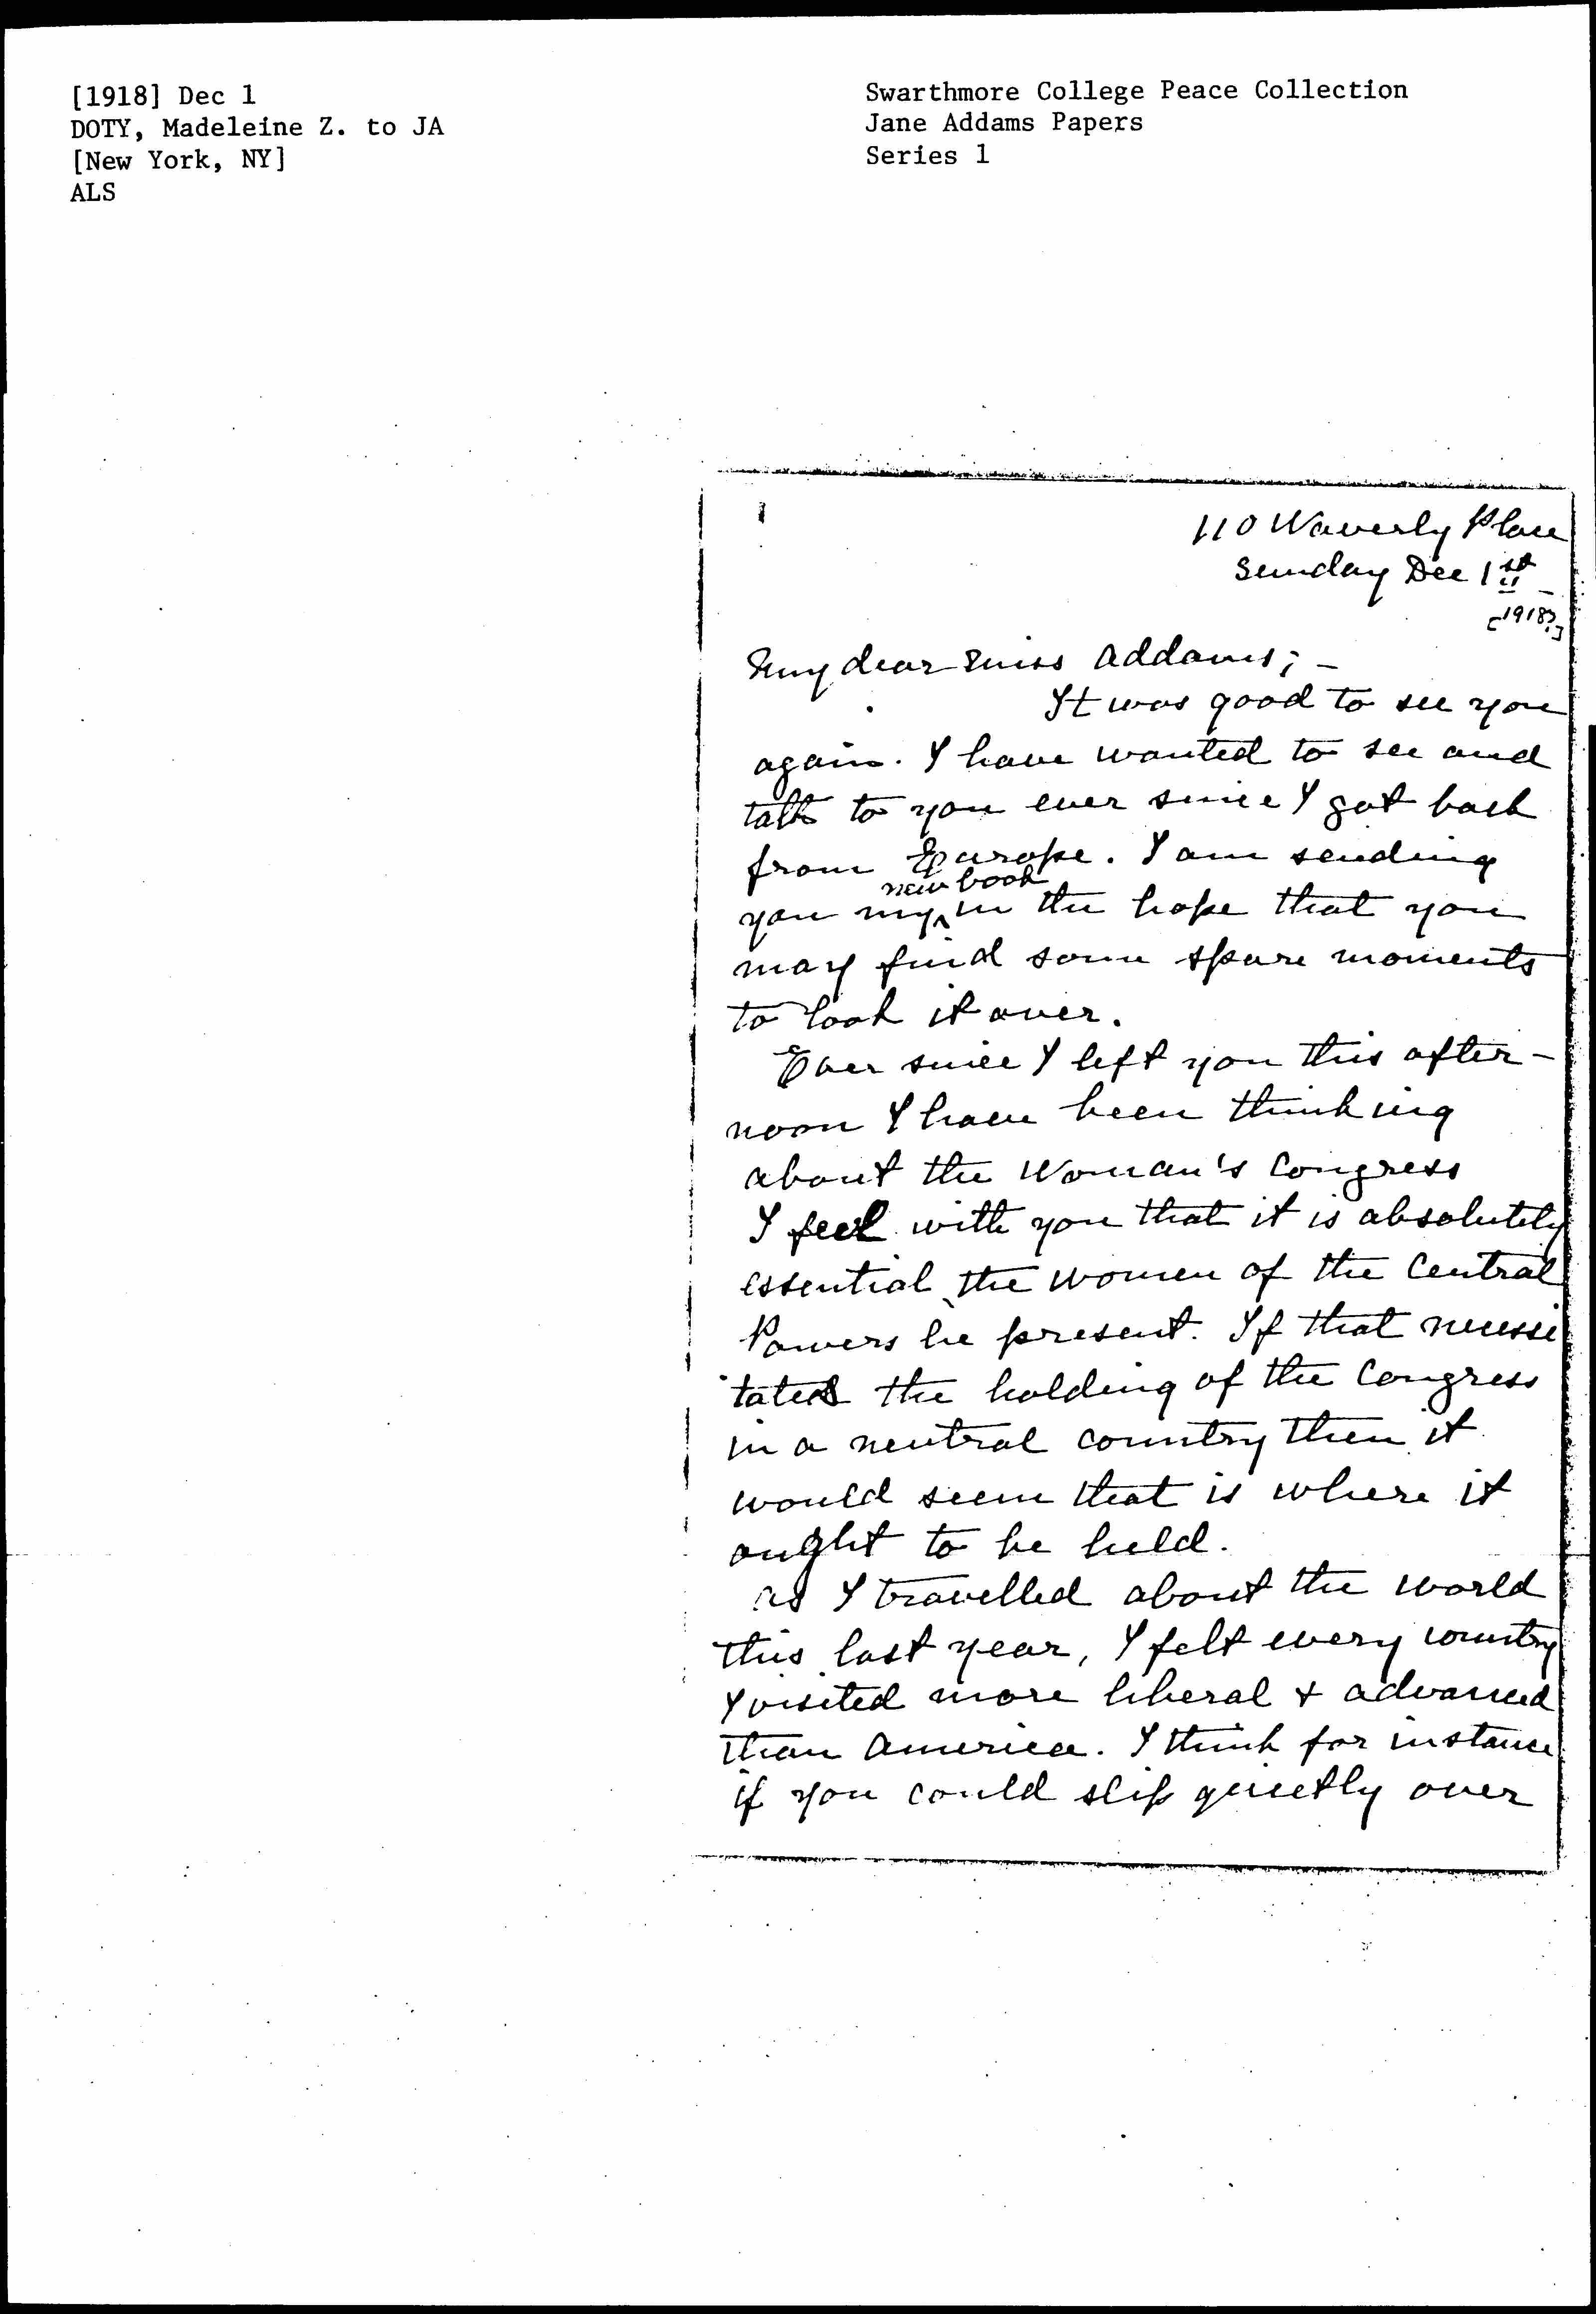 [1918] Dec 1
DOTY, Madeleine Z. to JA
[New York, NY]
ALS
Swarthmore College Peace Collection
Jane Addams Papers
Series 1
110 Waverly Place
Sunday Dec 1st
[1918?]
My dear Miss Addams; -
It was good to see you
again. I have wanted to see and
talk to you ever since I got back
from Europe. I am sending
you my new book in the hope that you
may find some spare moments
to look it over.
Ever since I left you this after-
noon I have been thinking
about the Woman's Congress
I feel with you that it is absolutely
essential the women of the Central
Powers be present. If that necessi
tates the holding of the Congress
in a neutral country then it
would seem that is where it
ought to be held.
As I travelled about the world
this last year, I felt every country
I visited more liberal & advanced
than America. I think for instance
if you could slip quietly over